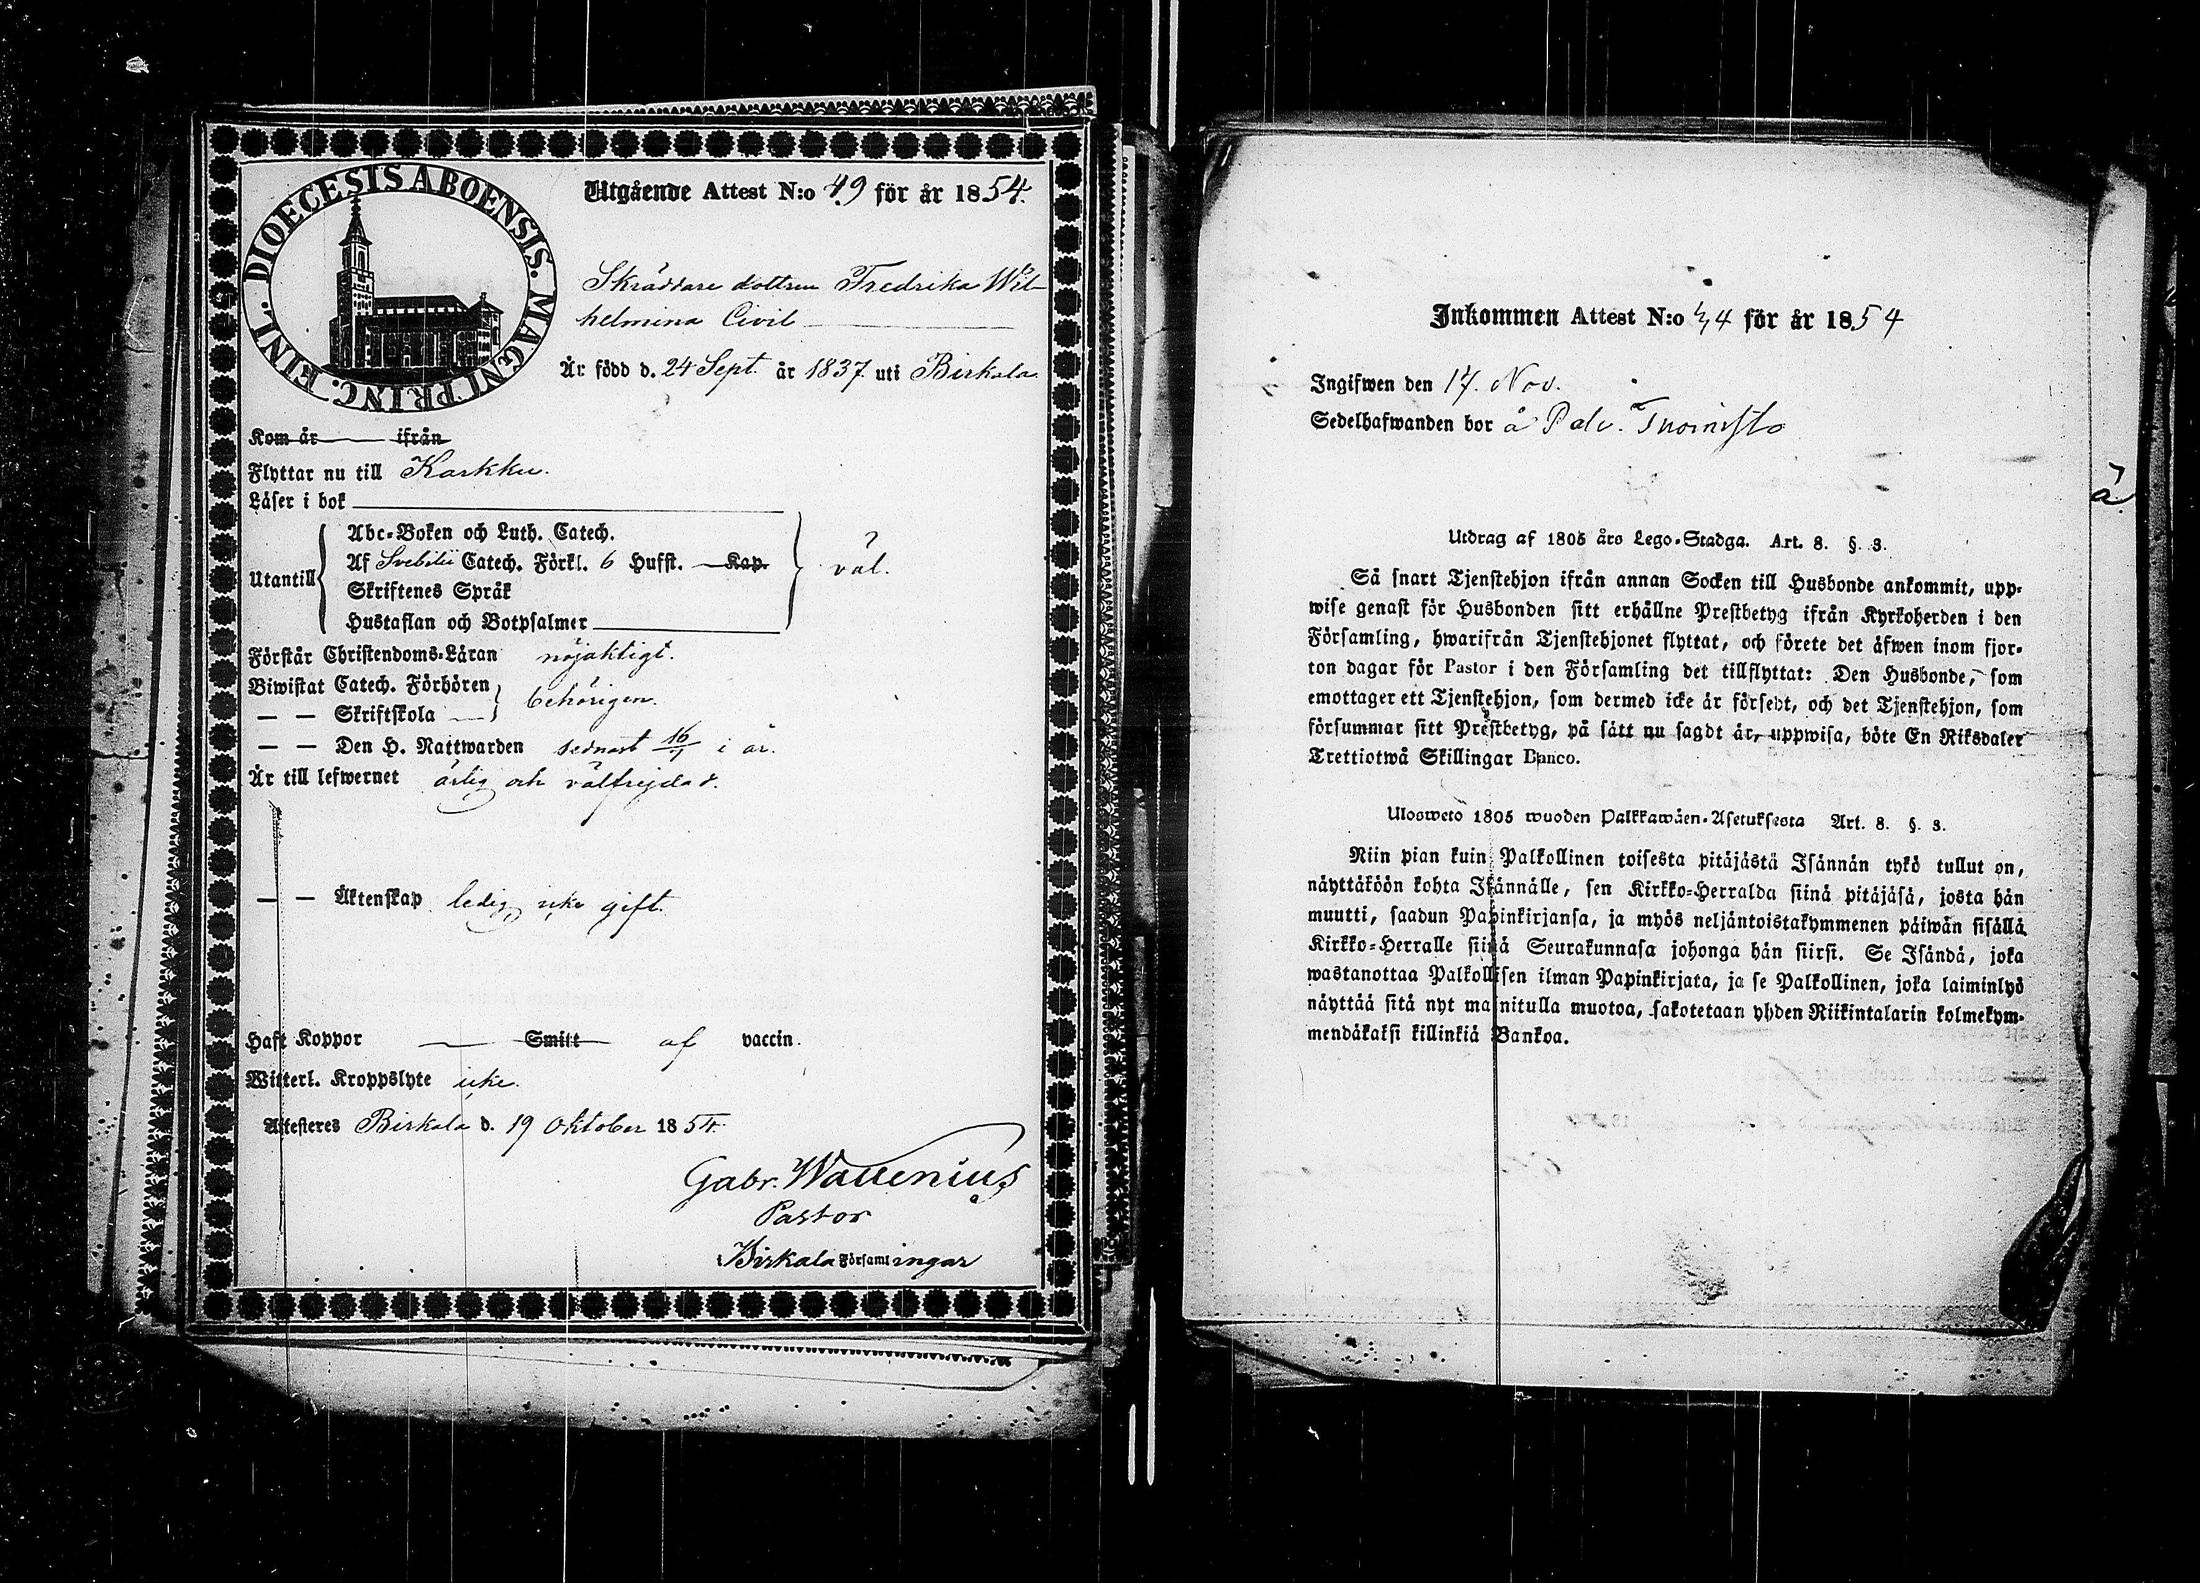 DIOECESIS ABOENSIS. MAGNI PRINC. FINL.
Utgående Attest N:o 49 för år 1854.
Skräddare dottren Fredrika Wil-
helmina Civil
Är född d. 24 Sept. år 1837 uti Birkala
Kom år ifrån
Flyttar nu till Karkku.
Läser i bok
Utantill
Abc-Boken och Luth. Catech.
Af Svebilii Catech. Förkl. 6 Hufst. Kap.
Skriftenes Språk
Hustaflan och Botpsalmer
väl.
Förstår Christendoms-Läran nöjaktigt.
Biwistat Catech. Förhören
— — Skriftskola
behörigen.
— — Den H. Nattwarden sednast 16/7 i år.
Är till lefwernet ärlig och välfrejdad.
— — Äktenskap ledig, icke gift.
Haft Koppor — Smitt af vaccin.
Witterl. Kroppslyte icke.
Attesteres Birkala d. 19 Oktober 1854.
Gabr. Wallenius
Pastor
i Birkala Församlingar
Inkommen Attest N:o 44 för år 1854
Ingifwen den 17. Nov.
Sedelhafwanden bor å Palv. Tuomisto
Utdrag af 1805 års Lego-Stadga. Art. 8. §. 3.
Så snart Tjenstehjon ifrån annan Socken till Husbonde ankommit, upp-
wise genast för Husbonden sitt erhållne Prestbetyg ifrån Kyrkoherden i den
Församling, hwarifrån Tjenstehjonet flyttat, och förete det äfwen inom fjor-
ton dagar för Pastor i den Församling det tillflyttat: Den Husbonde, som
emottager ett Tjenstehjon, som dermed icke är försedt, och det Tjenstehjon, som
försummar sitt Prestbetyg, på sätt nu sagdt är, uppwisa, böte En Riksdaler
Trettiotwå Skillingar Banco.
Ulosweto 1805 wuoden Palkkawäen-Asetuksesta Art. 8. §. 3.
Niin pian kuin Palkollinen toisesta pitäjästä Isännän tykö tullut on,
näyttäköön kohta Isännälle, sen Kirkko-Herralda siinä pitäjäsä, josta hän
muutti, saadun Papinkirjansa, ja myös neljäntoistakymmenen päiwän sisällä
Kirkko-Herralle siinä Seurakunnasa johonga hän siirsi. Se Isändä, joka
wastanottaa Palkollisen ilman Papinkirjata, ja se Palkollinen, joka laiminlyö
näyttää sitä nyt mainitulla muotoa, sakotetaan yhden Riikintalarin kolmekym-
mendäkaksi killinkiä Bankoa.
å